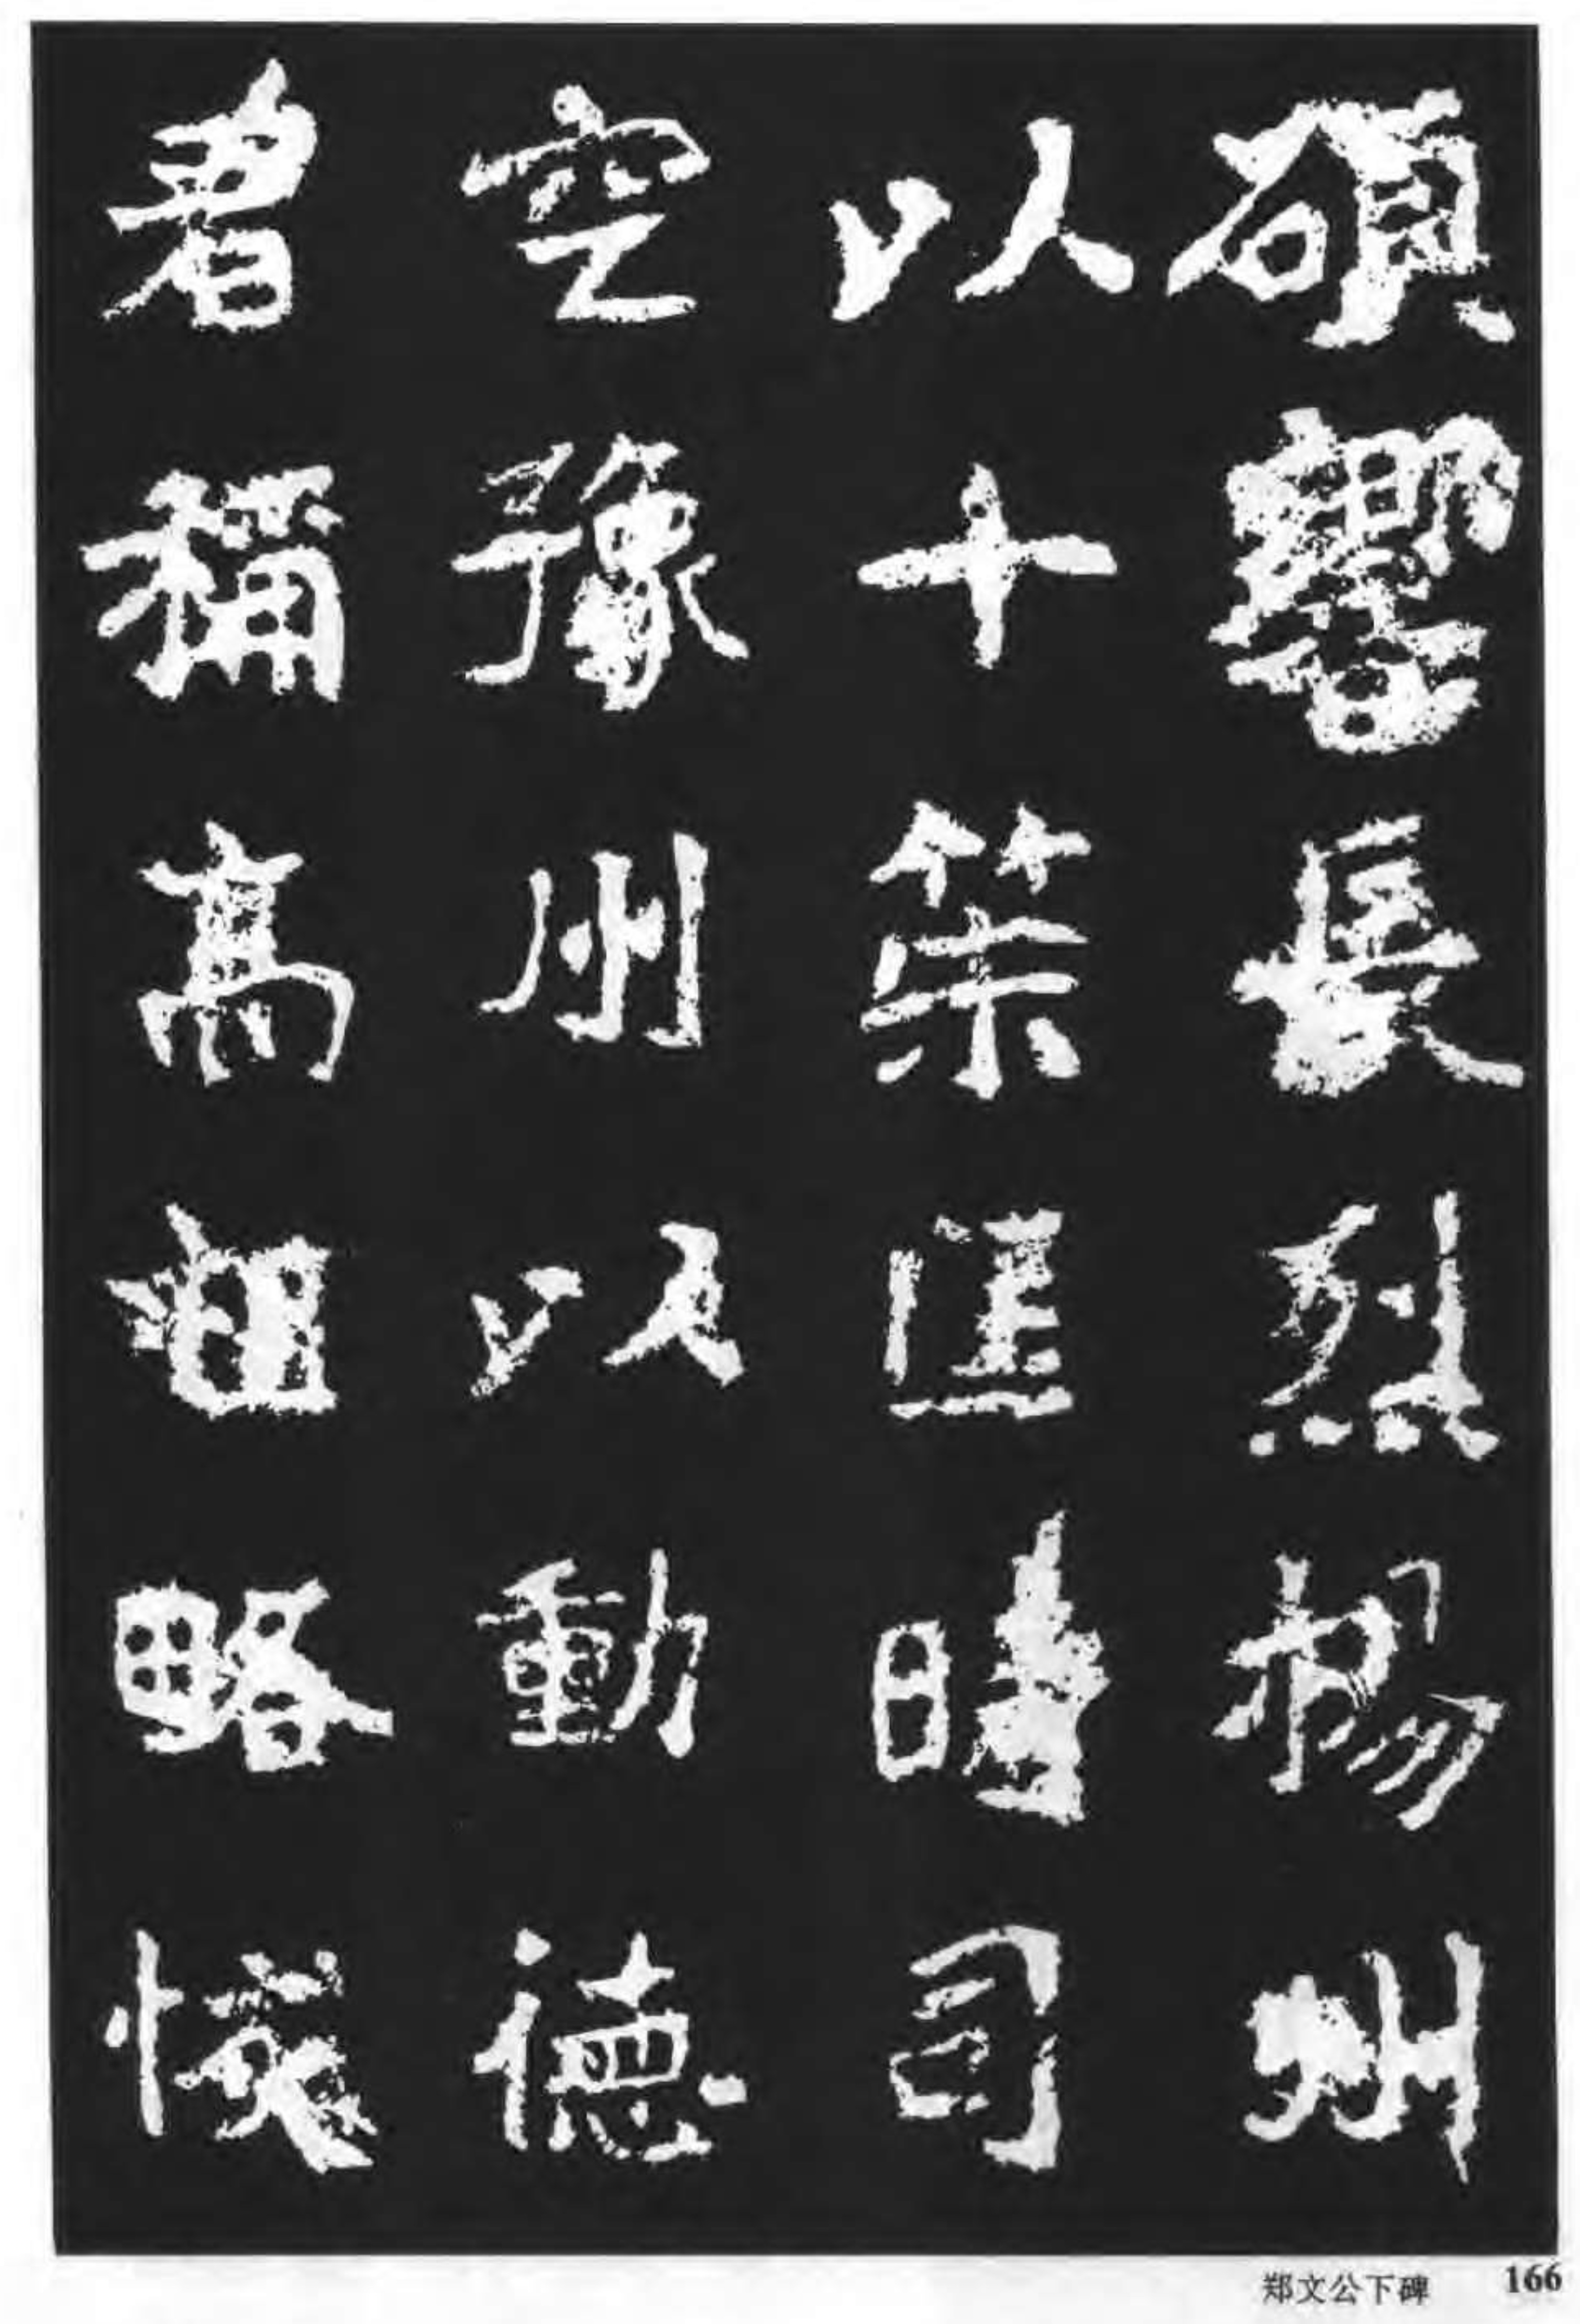 碩響長烈楊州
以十策匡時司
空豫州以勳德
著稱高祖略懷
郑文公下碑 166